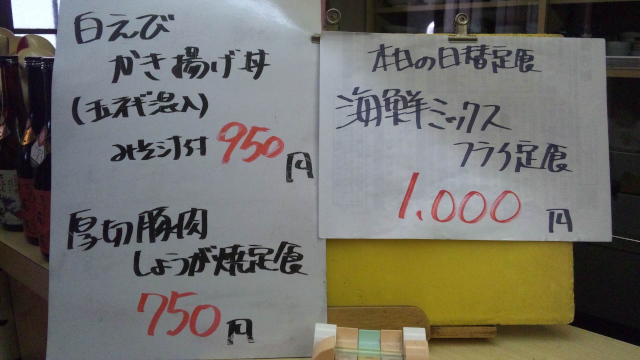 白えび
かき揚げ丼
(玉ネギ混入)
みそ汁付 950円
厚切豚肉
しょうが焼定食
750円
本日の日替定食
海鮮ミックス
フライ定食
1.000円